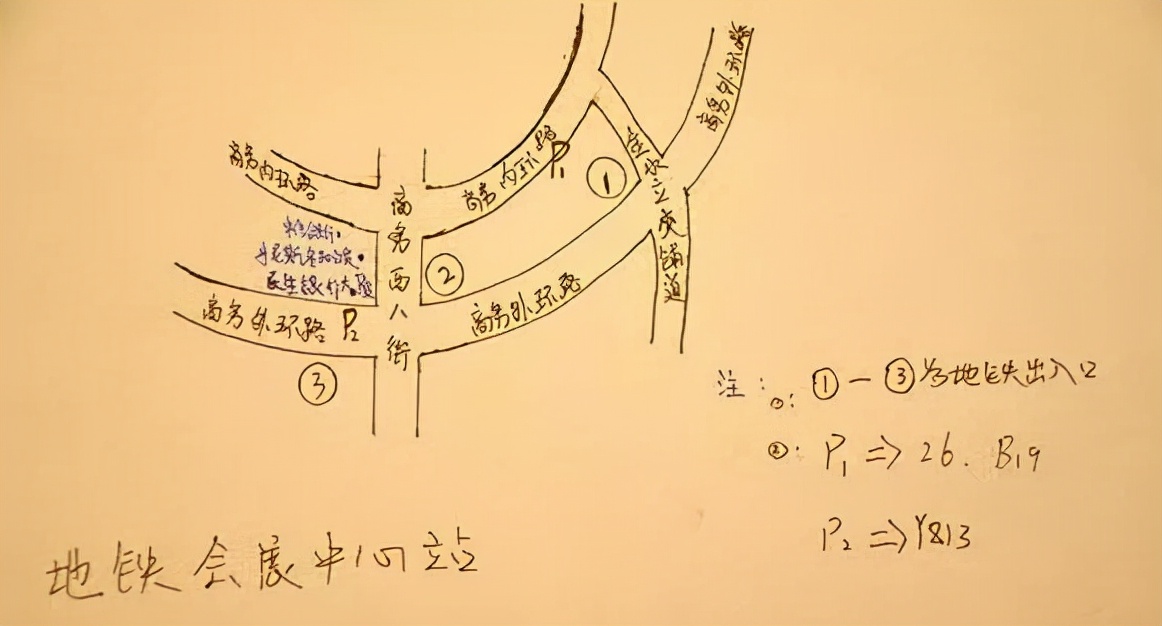 商务外环路
商务内环路
商务内环路
P₁
①
金水立交辅道
商务西八街
丹尼斯
民生银行大厦
②
商务外环路
P₂
商务外环路
③
注:①:①—③为地铁出入口
②:P₁=>26. B19
P₂=>Y813
地铁会展中心站